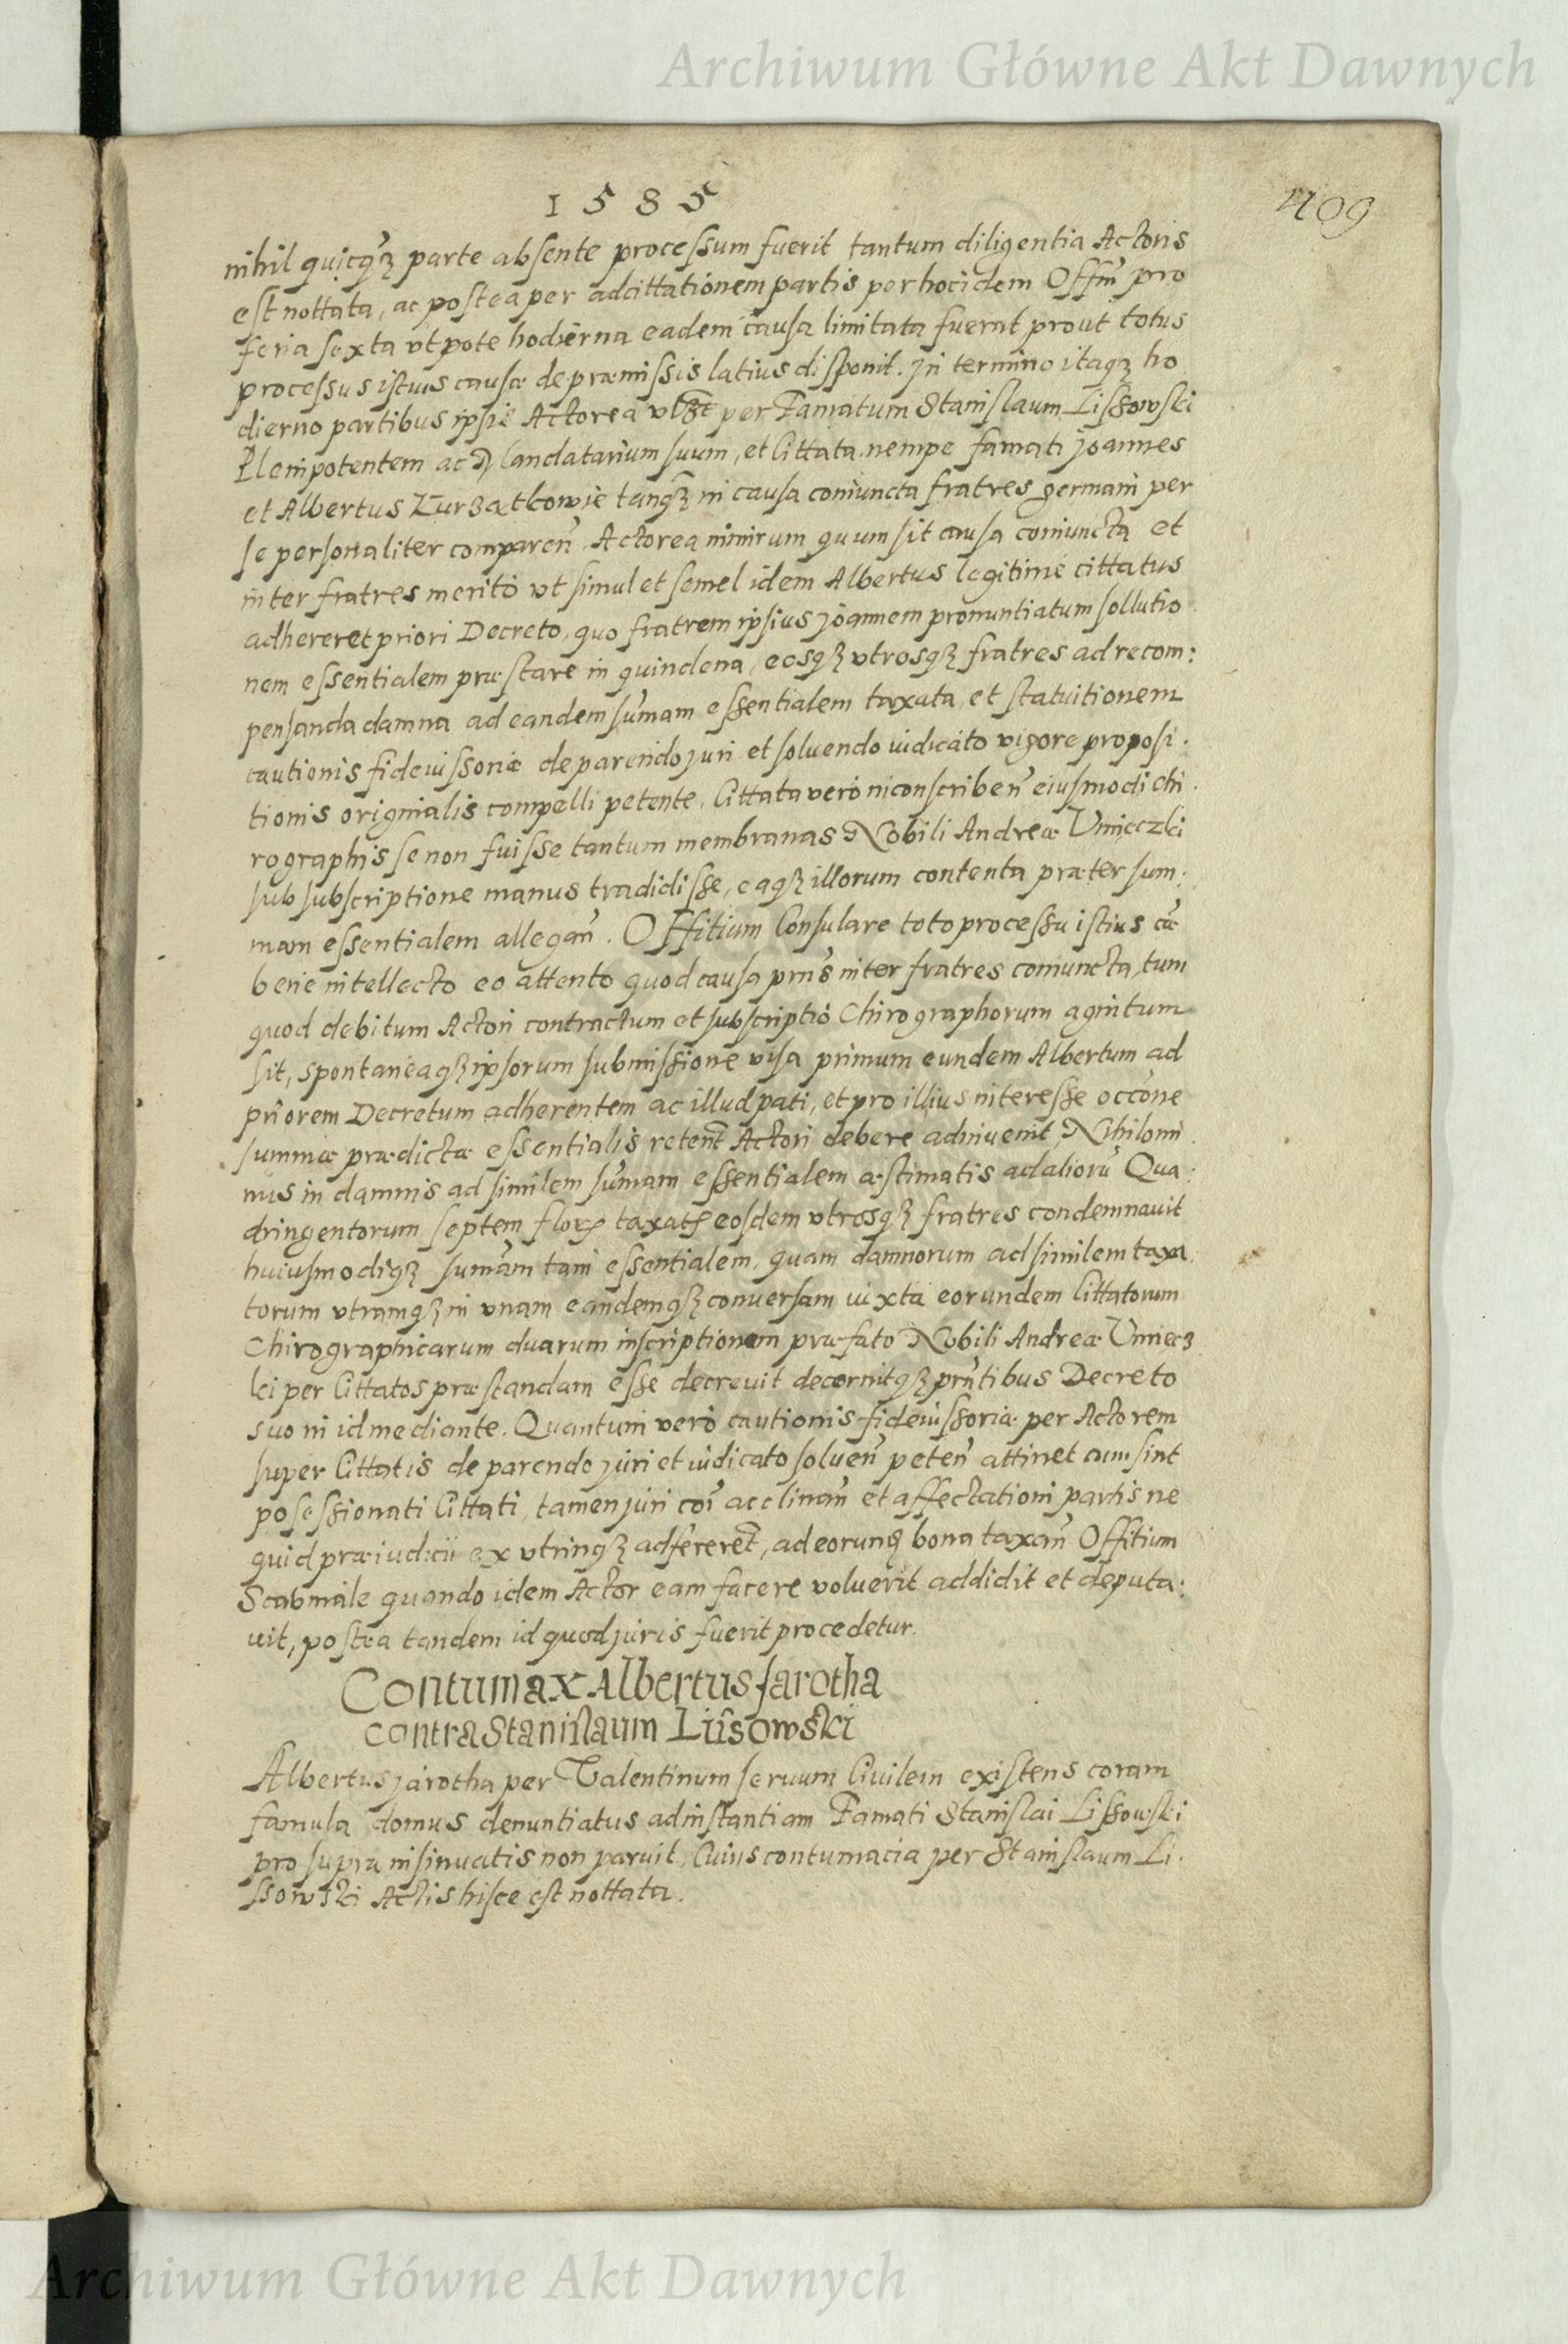 Archiwum Główne Akt Dawnych
1585
409
nihil quicqz parte absente processum fuerit tantum diligentia Actoris
est nottata, ac postea per adcittationem partis per hoc idem Offm pro
feria sexta vt pote hodierna eadem causa limitata fuerat prout totus
processus istius causæ de præmissis latius disponit. Jn termino itaqz ho
dierno partibus ipsis Actorea per Famatum Stanislaum Lissowski
Plenipotentem ac Mandatarium suum, et Cittata nempe famati Joannes
et Albertus tanqz in causa coniuncta fratres germani per
se personaliter comparen. Actorea nimirum quum sit causa coniuncta et
inter fratres merito vt simul et semel idem Albertus legitime cittatus
adhereret priori Decreto, quo fratrem ipsius Joannem pronuntiatum sollutio
nem essentialem præstare in quindena, eosqz vtrosqz fratres ad recom:
pensanda damna ad eandem sumam essentialem taxata, et statuitionem
cautionis fideiussoriæ de parendo juri et soluendo iudicato vigore proposi.
tionis originalis compelli petente. Cittata vero inconscriben eiusmodi Chi.
rographis se non fuisse tantum membranas Nobili Andreæ Vmieczki
sub subscriptione manus tradidisse, eaqz illorum contenta præter sum:
mam essentialem allegan. Offitium Consulare toto processu istius cæ
bene intellecto eo attento quod causa pns inter fratres coniuncta, tum
quod debitum Actori contractum et subscriptio Chirographorum agnitum
sit, spontaneaqz ipsorum submissione visa primum eundem Albertum ad
priorem Decretum adherentem ac illud pati, et pro illius interesse occone
summæ prædictæ essentialis retent Actori debere adinuenit, Nihilomi
nus in damnis ad similem sumam essentialem æstimatis ad aliorũ Qua:
dringentorum septem flor taxat eosdem vtrosqz fratres condemnauit
huiusmodiqz sumam tam essentialem, quam damnorum ad similem taxa.
torum vtramqz in vnam eandemqz conuersam iuxta eorundem Cittatorum
Chirographicarum duarum inscriptionem præfato Nobili Andreæ Vmiecz
ki per Cittatos præstandam esse decreuit decernitqz pntibus Decreto
suo in id mediante. Quantum vero cautionis fideiussoriæ per Actorem
super Cittatis de parendo juri et iudicato soluen peten attinet cum sint
posessionati Cittati, tamen juri coi acclinan et affectationi partis ne
quid præiudicii ex vtrinqz adfereret, ad eorunq bona taxan Offitium
Scabinale quando idem Actor eam facere voluerit addidit et deputa:
uit, postea tandem id quod juris fuerit procedetur.
Contumax Albertus Jarotha
contra Stanislaum Lissowski
Albertus Jarotha per Valentinum seruum Ciuilem existens coram
famula domus denuntiatus ad instantiam Famati Stanislai Lissowski
pro supra insinuatis non paruit, Cuius contumacia per Stanislaum Li.
ssowski Actis hisce est nottata.
Archiwum Główne Akt Dawnych